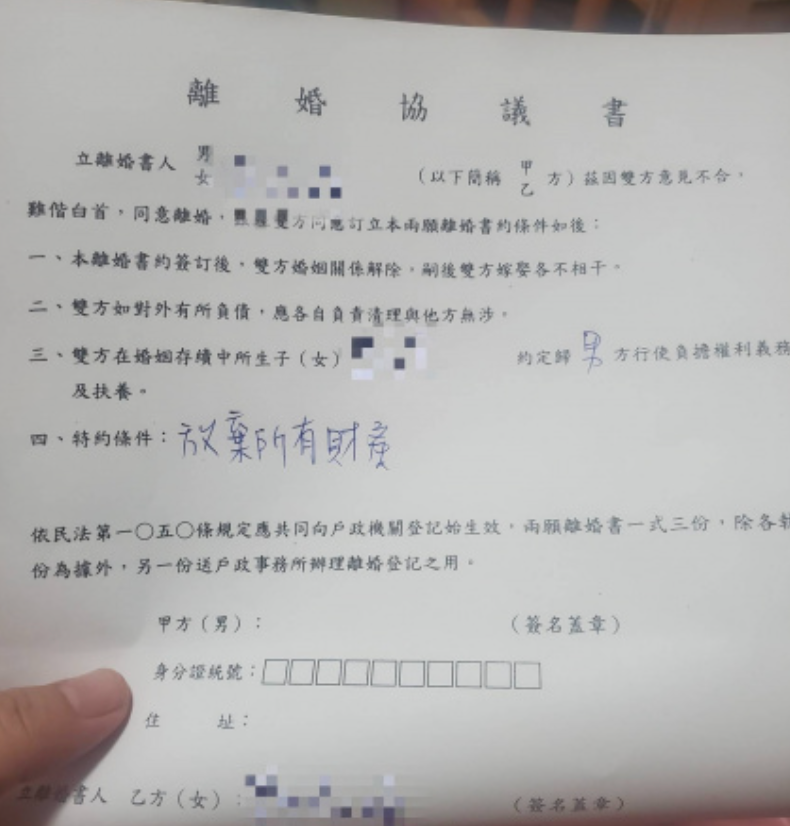 離婚協議書
立離婚書人 男 女 (以下簡稱 甲 乙 方)茲因雙方意見不合，
難偕白首，同意離婚，雙方同應訂立本兩願離婚書約條件如後：
一、本離婚書約簽訂後，雙方婚姻關係解除，嗣後雙方嫁娶各不相干。
二、雙方如對外有所負債，應各自負責清理與他方無涉。
三、雙方在婚姻存續中所生子（女） 約定歸 男 方行使負擔權利義務
及扶養。
四、特約條件：放棄所有財產
依民法第一〇五〇條規定應共同向戶政機關登記始生效，兩願離婚書一式三份，除各執
份為據外，另一份送戶政事務所辦理離婚登記之用。
甲方（男）： （簽名蓋章）
身分證統號：
住 址：
立離婚書人 乙方（女）： （簽名蓋章）